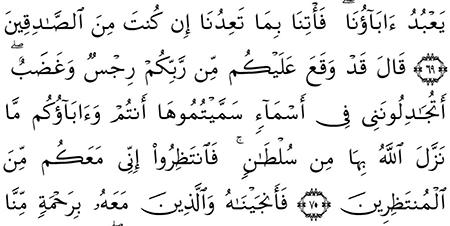 يَعْبُدُ ءَابَآؤُنَا ۖ فَأْتِنَا بِمَا تَعِدُنَا إِن كُنتَ مِنَ الصَّـٰدِقِينَ
﴿٦٩﴾ قَالَ قَدْ وَقَعَ عَلَيْكُم مِّن رَّبِّكُمْ رِجْسٌ وَغَضَبٌ ۖ
أَتُجَـٰدِلُونَنِى فِىٓ أَسْمَآءٍ سَمَّيْتُمُوهَآ أَنتُمْ وَءَابَآؤُكُم مَّا
نَزَّلَ اللَّهُ بِهَا مِن سُلْطَـٰنٍ ۚ فَانتَظِرُوٓا۟ إِنِّى مَعَكُم مِّنَ
الْمُنتَظِرِينَ ﴿٧٠﴾ فَأَنجَيْنَـٰهُ وَالَّذِينَ مَعَهُۥ بِرَحْمَةٍ مِّنَّا